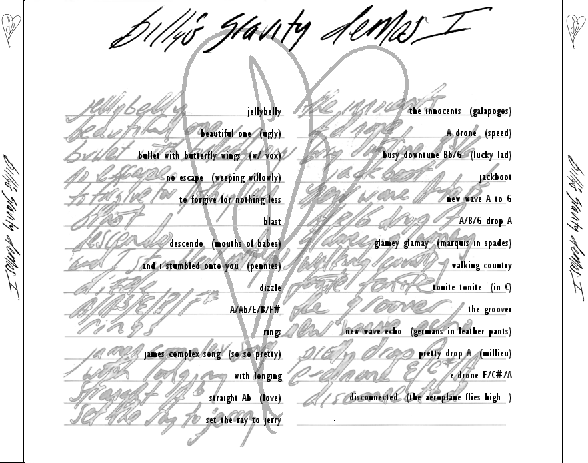 billy's gravity demos I
jellybelly
beautiful one (ugly)
bullet with butterfly wings (w/ vox)
no escape (weeping willowly)
to forgive for nothing less
blast
descendo (mouths of babes)
and i stumbled onto you (pennies)
dizzle
A/Ab/E/B/F#
rings
james complex song (so so pretty)
with longing
straight Ab (love)
set the ray to jerry
the innocents (galapogos)
A drone (speed)
busy downtune Bb/G (lucky lad)
jackboot
new wave A to G
A/B/G drop A
glamey glamay (marquis in spades)
walking country
tonite tonite (in C)
the groover
new wave echo (germans in leather pants)
pretty drop A (millieu)
e drone E/C#/A
disconnected (the aeroplane flies high )
billy's gravity demos I
billy's gravity demos I